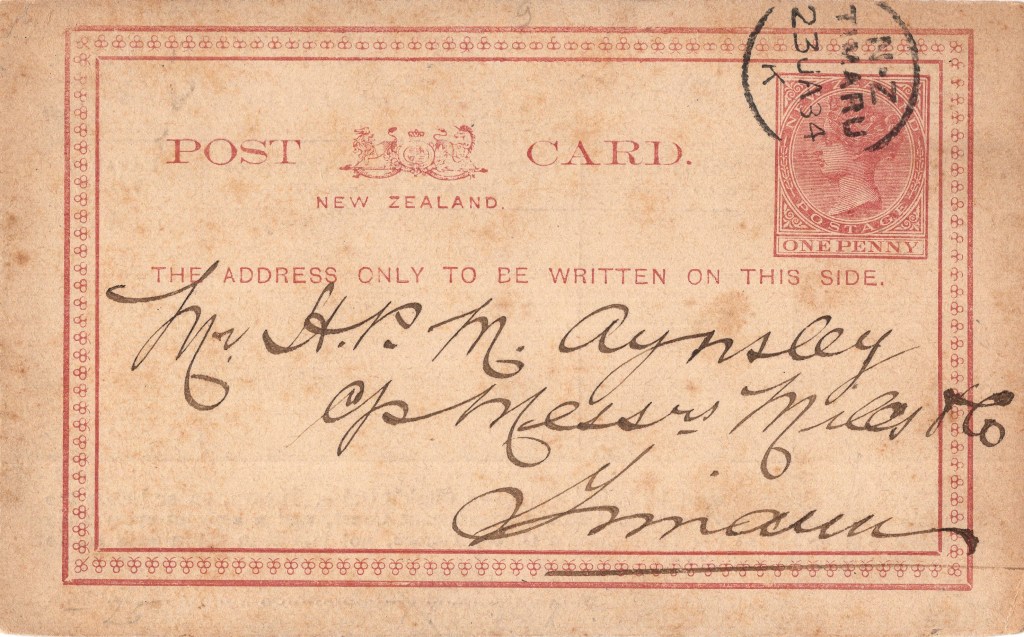 N·Z
TIMARU
23 JA 84
K
POST CARD.
NEW ZEALAND.
POSTAGE
ONE PENNY
THE ADDRESS ONLY TO BE WRITTEN ON THIS SIDE.
Mr. H. P. M. Aynsley
c/o Messrs Miles & Co
Timaru